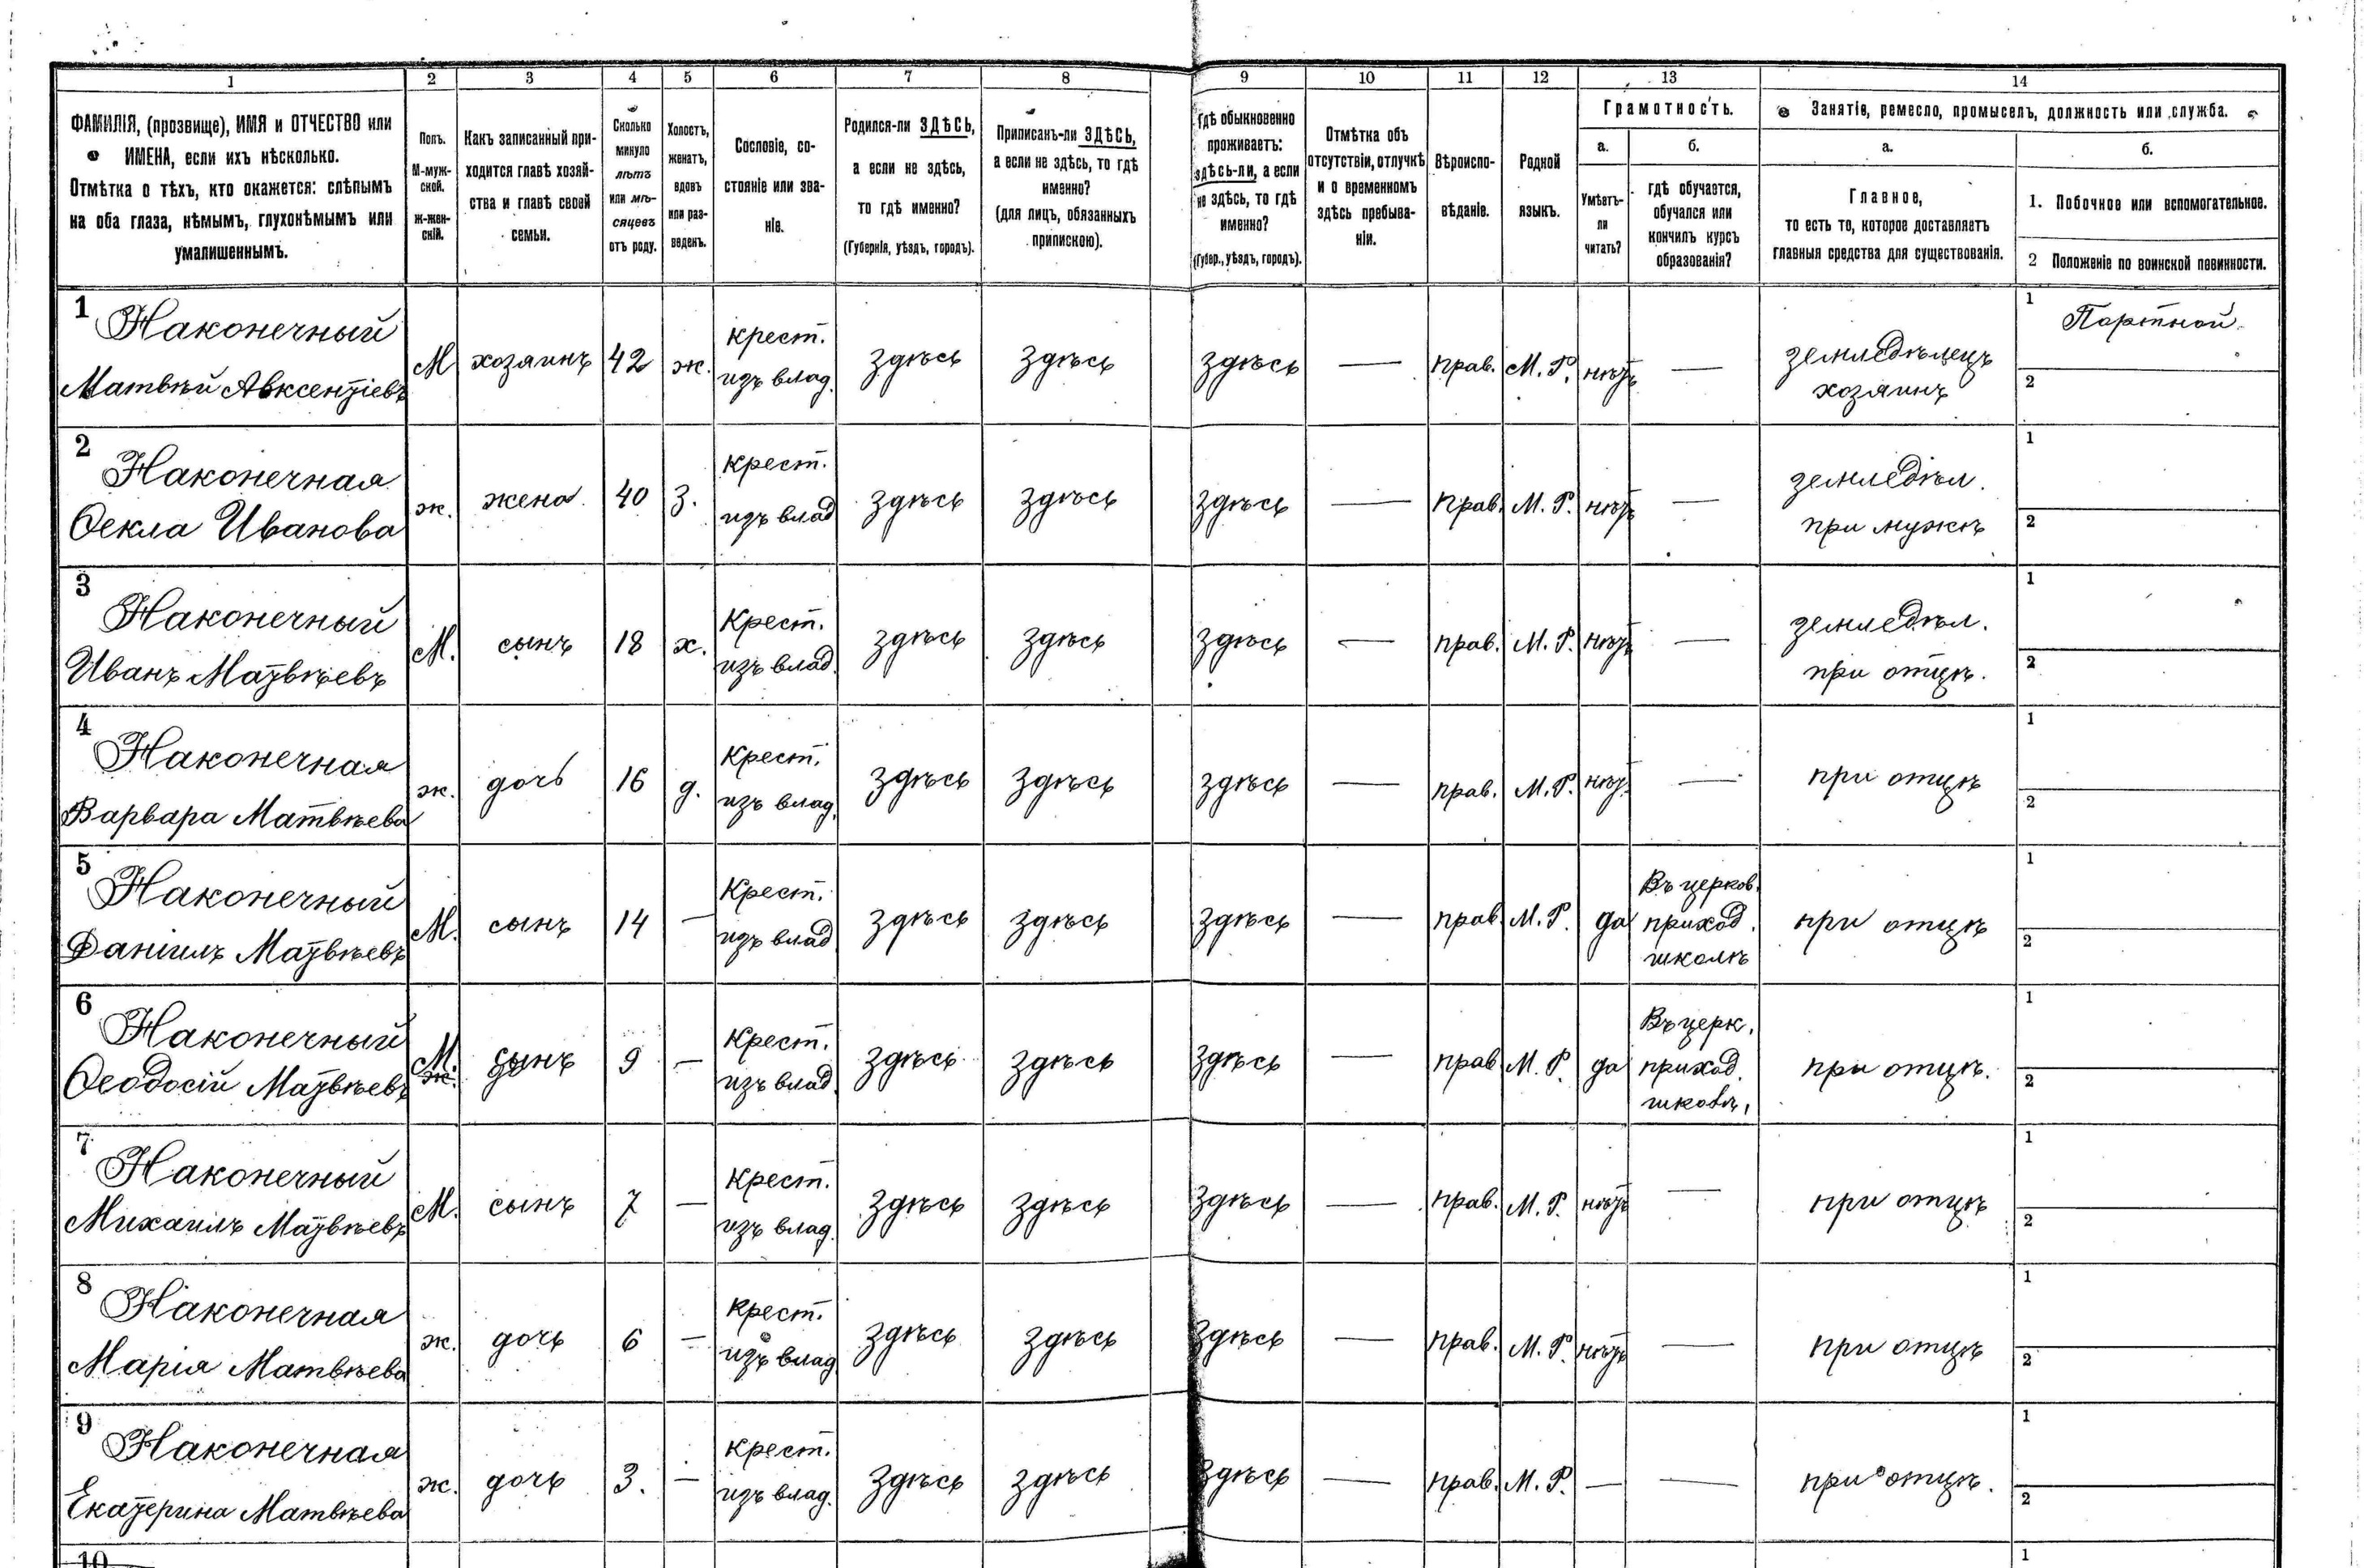 1 2 3 4 5 6 7 8 9 10 11 12 13 14
ФАМИЛІЯ, (прозвище), ИМЯ и ОТЧЕСТВО или
ИМЕНА, если ихъ нѣсколько.
Отмѣтка о тѣхъ, кто окажется: слѣпымъ
на оба глаза, нѣмымъ, глухонѣмымъ или
умалишеннымъ.
Полъ.
М-муж-
ской.
ж-жен-
скій.
Какъ записанный при-
ходится главѣ хозяй-
ства и главѣ своей
семьи.
Сколько
минуло
лѣтъ
или мѣ-
сяцевъ
отъ роду.
Холостъ,
женатъ,
вдовъ
или раз-
веденъ.
Сословіе, со-
стояніе или зва-
ніе.
Родился-ли ЗДѢСЬ,
а если не здѣсь,
то гдѣ именно?
(Губернія, уѣздъ, городъ).
Приписанъ-ли ЗДѢСЬ,
а если не здѣсь, то гдѣ
именно?
(для лицъ, обязанныхъ
припискою).
Гдѣ обыкновенно
проживаетъ:
здѣсь-ли, а если
не здѣсь, то гдѣ
именно?
(Губер., уѣздъ, городъ).
Отмѣтка объ
отсутствіи, отлучкѣ
и о временномъ
здѣсь пребыва-
ніи.
Вѣроиспо-
вѣданіе.
Родной
языкъ.
Грамотность.
а.
Умѣетъ-
ли
читать?
б.
гдѣ обучается,
обучался или
кончилъ курсъ
образованія?
Занятіе, ремесло, промыселъ, должность или служба.
а.
Главное,
то есть то, которое доставляетъ
главныя средства для существованія.
б.
1. Побочное или вспомогательное.
2 Положеніе по воинской повинности.
1 Наконечный
Матвѣй Авксентіевъ
М хозяинъ 42 ж.
крест.
изъ влад.
здѣсь здѣсь здѣсь — прав. М. Р. нѣтъ —
земледѣлецъ
хозяинъ
1 Портной.
2
2 Наконечная
Ѳекла Иванова
ж. жена 40 з.
крест.
изъ влад
здѣсь здѣсь здѣсь — прав. М. Р. нѣтъ —
земледѣл.
при мужѣ
1
2
3 Наконечный
Иванъ Матвѣевъ
М. сынъ 18 х.
Крест.
изъ влад.
здѣсь здѣсь здѣсь — прав. М. Р. нѣтъ —
земледѣл.
при отцѣ.
1
2
4 Наконечная
Варвара Матвѣева
ж. дочь 16 д.
Крест.
изъ влад.
здѣсь здѣсь здѣсь — прав. М. Р. нѣт. —
при отцѣ
1
2
5 Наконечный
Даніилъ Матвѣевъ
М. сынъ 14 —
Крест.
изъ влад
здѣсь здѣсь здѣсь — прав. М. Р. да
Въ церков.
приход.
школѣ
при отцѣ
1
2
6 Наконечный
Ѳеодосій Матвѣевъ
М. ж. сынъ 9 —
Крест.
изъ влад.
здѣсь здѣсь здѣсь — прав М. Р. да
Въ церк.
приход.
при отцѣ.
1
2
7 Наконечный
Михаилъ Матвѣевъ
М. сынъ 7 —
Крест.
изъ влад.
здѣсь здѣсь здѣсь — прав. М. Р. нѣтъ —
при отцѣ
1
2
8 Наконечная
Марія Матвѣева
ж. дочь 6 —
крест.
изъ влад
здѣсь здѣсь здѣсь — прав. М. Р. нѣтъ —
при отцѣ
1
2
9 Наконечная
Екатерина Матвѣева
ж. дочь 3. —
крест.
изъ влад.
здѣсь здѣсь здѣсь — прав. М. Р. — —
при отцѣ.
1
2
10
1